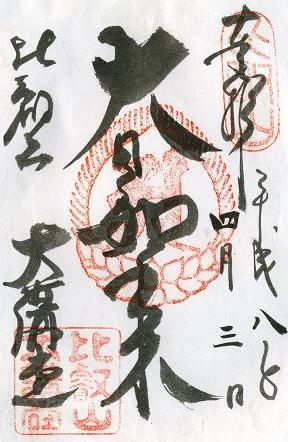 奉拝
平成八年
四月三日
大日如来
比叡山
大講堂
比叡山